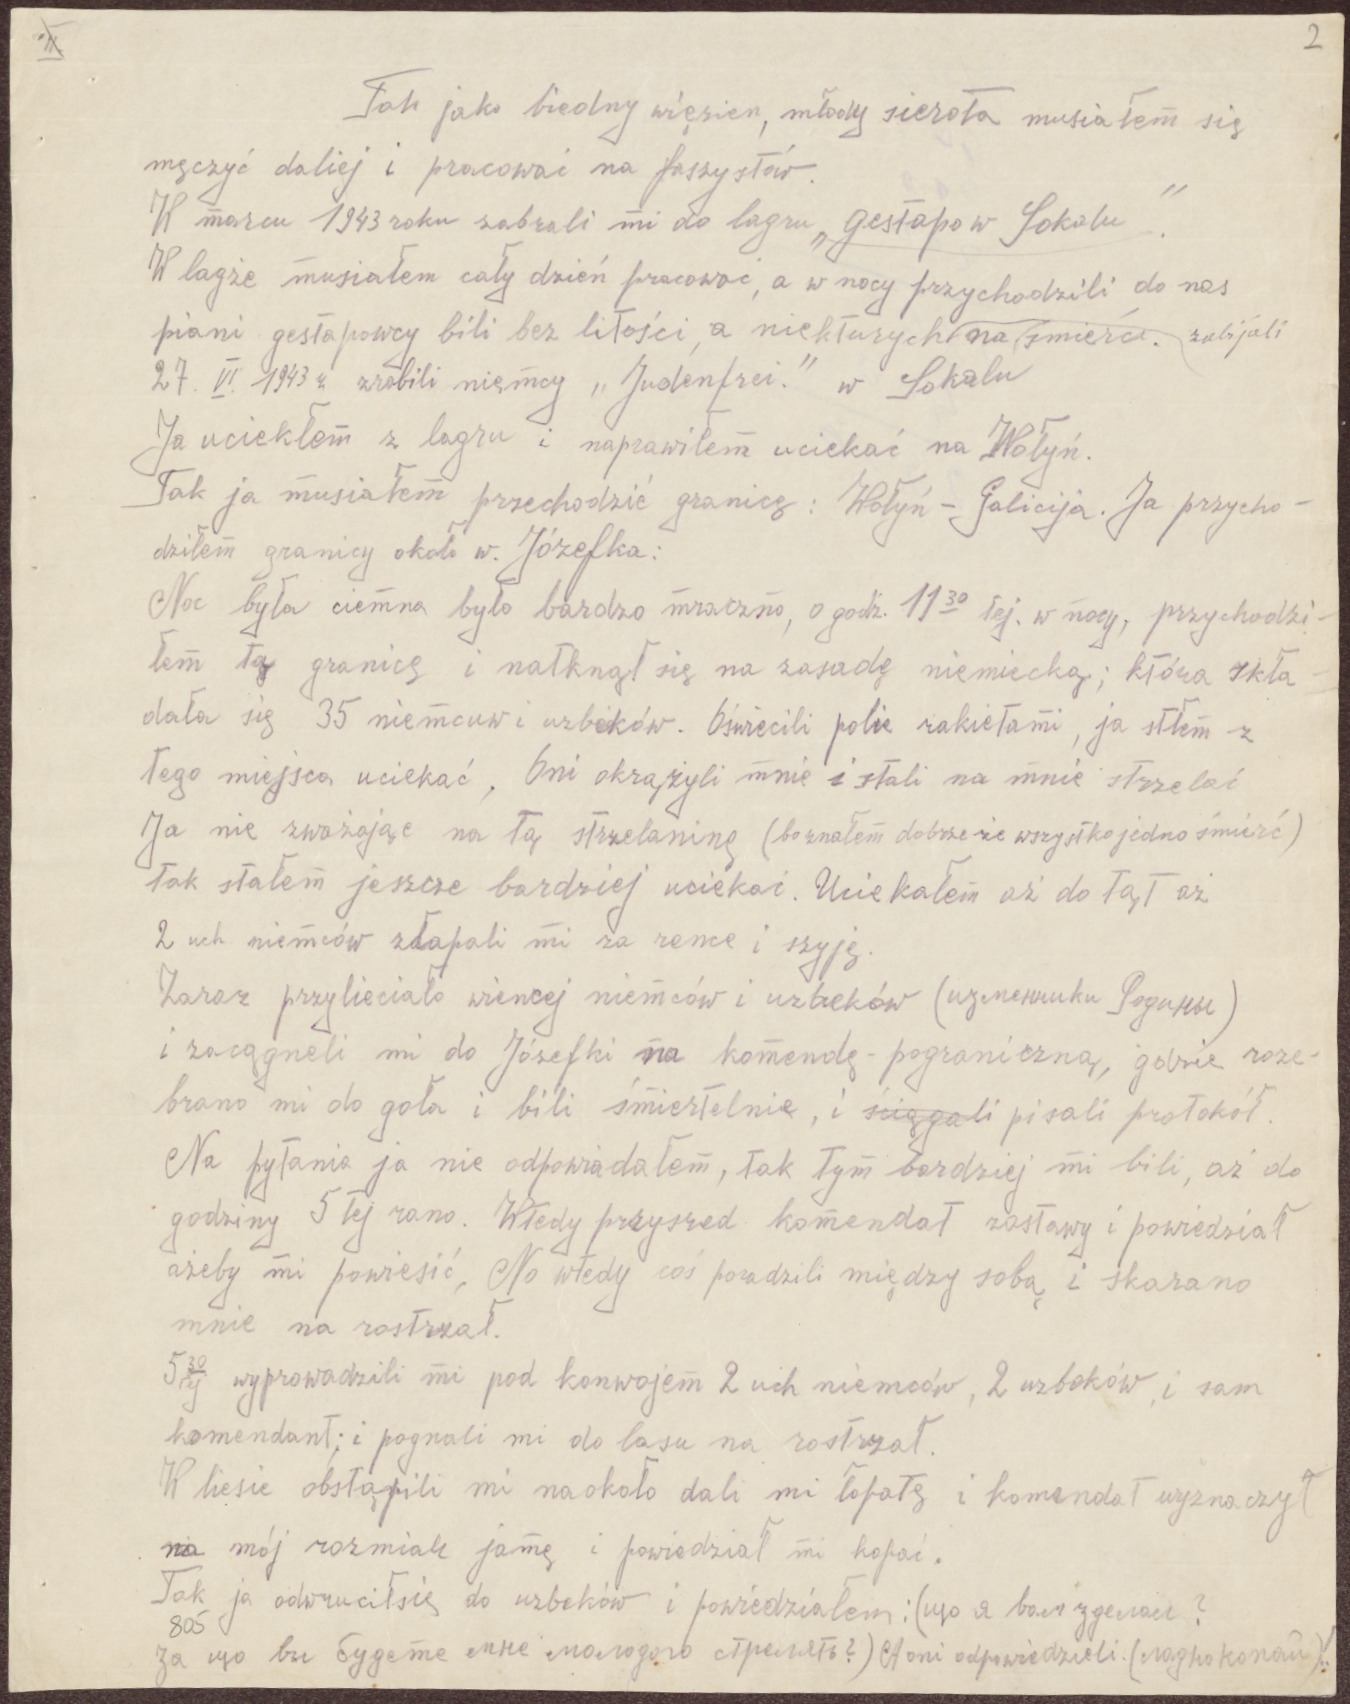 2
Tak jako biedny więzien, młody sierota musiałem się
męczyć daliej i pracować na faszystów.
W marcu 1943 roku zabrali mi do lagru „Gestapo w Sokalu".
W lagże musiałem cały dzień pracować, a w nocy przychodzili do nas
piani gestapowcy bili bez litości, a niekturych na śmierć. zabijali
27. VI. 1943 r. zrobili niemcy „Judenfrei." w Sokalu
Ja uciekłem z lagru i naprawiłem uciekać na Wołyń.
Tak ja musiałem przechodzić granicę: Wołyń – Galicija. Ja przycho-
dziłem granicy około w. Józefka:
Noc była ciemna było bardzo mraczno, o godź. 11 30 tej. w nocy, przychodzi-
łem tą granicę i natknął się na zasadę niemiecką; która skła-
dała się 35 niemcuw i uzbeków. Oświecili polie rakietami, ja stłem z
tego miejsca uciekać, Oni okrążyli mnie i stali na mnie strzelać
Ja nie zważając na tą strzelaninę (bo znałem dobrze że wszystko jedno śmierć)
tak stałem jeszcze bardziej uciekać. Uciekałem aż do tąt aż
2 uch niemców złapali mi za rence i szyję.
Zaraz przylieciało wiencej niemców i uzbeków (изменники Родины)
i zacągneli mi do Józefki na komendę-pograniczną, gdzie roze-
brano mi do goła i bili śmiertelnie, i ściągali pisali protokół.
Na pytania ja nie odpowiadałem, tak tym bardziej mi bili, aż do
godziny 5 tej rano. Wtedy przyszed komendat zastawy i powiedział
ażeby mi powiesić, No wtedy coś poradzili między sobą i skarano
mnie na rostrzał.
5 30 tej wyprowadzili mi pod konwojem 2 uch niemców, 2 uzbeków, i sam
komendant; i pognali mi do lasu na rostrzał.
W liesie obstąpili mi naokoło dali mi łopatę i komendat wyznaczył
na mój rozmiar jamę i powiedział mi kopać.
Tak ja odwruciłsię do uzbeków i powiedziałem: (що я вам зделал?
805
За що ви будете мне молодого стрелять?) A oni odpowiedzieli. (ладно копай)..